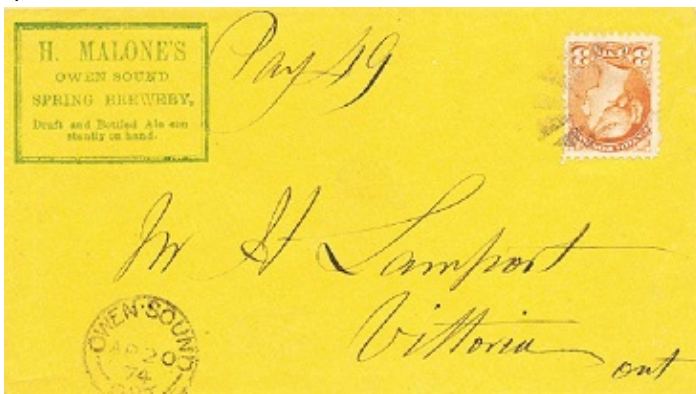 H. MALONE'S
OWEN SOUND
SPRING BREWERY,
Draft and Bottled Ale con
stantly on hand.
Pay 49
3 3
Mr H Lamport
Vittoria
ont
OWEN·SOUND
AP 20
74
ONT